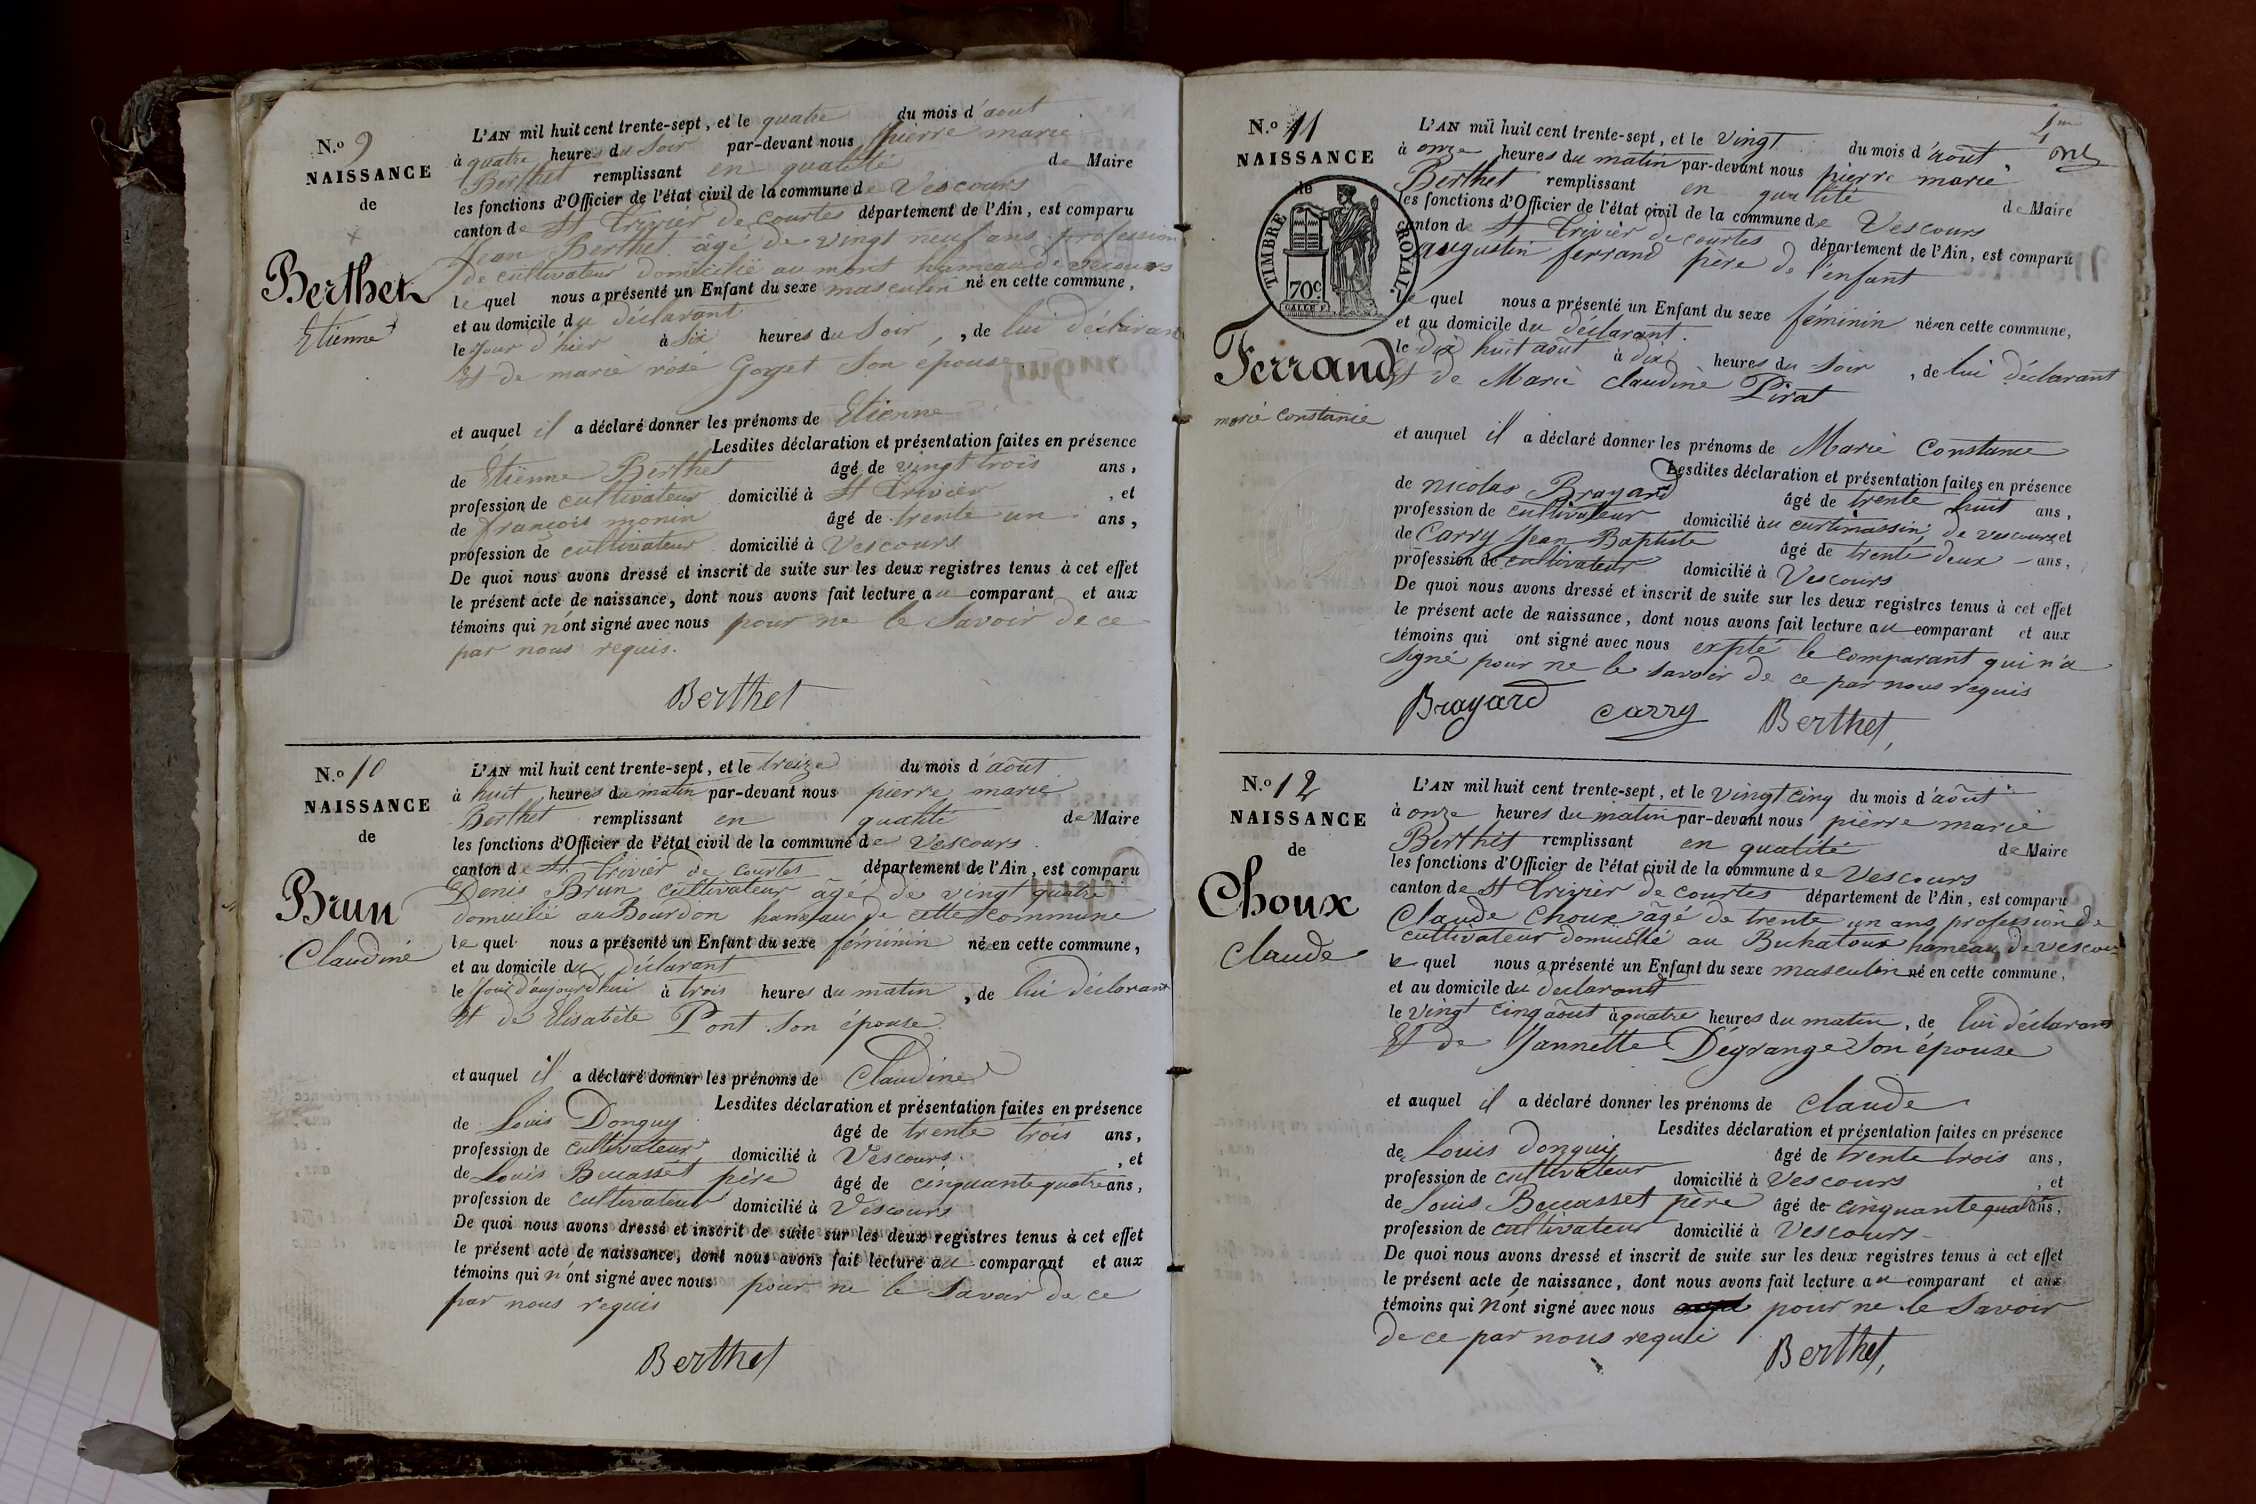 N.º 9
NAISSANCE
de
Berthet
Etienne
L'AN mil huit cent trente-sept, et le quatre du mois d'août
à quatre heures du soir par-devant nous pierre marie
Berthet remplissant en qualité de Maire
les fonctions d'Officier de l'état civil de la commune de Vescours
canton de St Trivier de courtes département de l'Ain, est comparu
Jean Berthet âgé de vingt neuf ans profession
de cultivateur domicilié au mont hameau de vescours
le quel nous a présenté un Enfant du sexe masculin né en cette commune,
et au domicile du déclarant
le Jour d'hier à six heures du soir, de lui déclarant
Et de marie rose Gorget Son epouse
et auquel il a déclaré donner les prénoms de Etienne
Lesdites déclaration et présentation faites en présence
de Etienne Berthet âgé de vingt trois ans,
profession de cultivateur domicilié à St Trivier, et
de françois monin âgé de trente un ans,
profession de cultivateur domicilié à Vescours
De quoi nous avons dressé et inscrit de suite sur les deux registres tenus à cet effet
le présent acte de naissance, dont nous avons fait lecture au comparant et aux
témoins qui n'ont signé avec nous pour ne le Savoir de ce
par nous requis.
Berthet
N.º 10
NAISSANCE
de
Brun
Claudine
L'AN mil huit cent trente-sept, et le treize du mois d'août
à huit heures du matin par-devant nous pierre marie
Berthet remplissant en qualité de Maire
les fonctions d'Officier de l'état civil de la commune de Vescours
canton de St Trivier de courtes département de l'Ain, est comparu
Denis Brun cultivateur âgé de vingt quatre
domicilié au Bourdon hameau de cette commune
le quel nous a présenté un Enfant du sexe féminin né en cette commune,
et au domicile du déclarant
le Jour d'aujourd'hui à trois heures du matin, de lui déclarant
Et de Elisabete Pont Son épouse
et auquel il a déclaré donner les prénoms de Claudine
Lesdites déclaration et présentation faites en présence
de Louis Donguy âgé de trente trois ans,
profession de cultivateur domicilié à Vescours, et
de Louis Beccasset père âgé de cinquante quatre ans,
profession de cultivateur domicilié à Vescours
De quoi nous avons dressé et inscrit de suite sur les deux registres tenus à cet effet
le présent acte de naissance, dont nous avons fait lecture au comparant et aux
témoins qui n'ont signé avec nous pour ne le Savoir de ce
par nous requis
Berthet
N.º 11
NAISSANCE
de
TIMBRE ROYAL.
70c
Ferrand
marie constance
L'AN mil huit cent trente-sept, et le vingt du mois d'août
à onze heures du matin par-devant nous pierre marie
Berthet remplissant en qualité de Maire
les fonctions d'Officier de l'état civil de la commune de Vescours
canton de St Trivier de courtes département de l'Ain, est comparu
augustin ferrand père de l'enfant
le quel nous a présenté un Enfant du sexe féminin né en cette commune,
et au domicile du déclarant.
le dix huit août à dix heures du soir, de lui déclarant
Et de Marie claudine Pirat
et auquel il a déclaré donner les prénoms de Marie Constance
Lesdites déclaration et présentation faites en présence
de nicolas Brayard âgé de trente huit ans,
profession de cultivateur domicilié au curtinassin, de vescours et
de Carry Jean Baptiste âgé de trente deux ans,
profession de cultivateur domicilié à Vescours
De quoi nous avons dressé et inscrit de suite sur les deux registres tenus à cet effet
le présent acte de naissance, dont nous avons fait lecture au comparant et aux
témoins qui ont signé avec nous expté le comparant qui n'a
Signé pour ne le savoir de ce par nous requis
Brayard carry Berthet,
N.º 12
NAISSANCE
de
Choux
Claude
L'AN mil huit cent trente-sept, et le vingt cinq du mois d'août
à onze heures du matin par-devant nous pierre marie
Berthet remplissant en qualité de Maire
les fonctions d'Officier de l'état civil de la commune de Vescours
canton de St Trivier de courtes département de l'Ain, est comparu
Claude Choux âgé de trente un ans profession de
cultivateur domicilié au Buhatoux hameau de vescou
le quel nous a présenté un Enfant du sexe masculin né en cette commune,
et au domicile du declarant
le vingt cinq août à quatre heures du matin, de lui déclarant
Et de Jannette Dégrange Son épouse
et auquel il a déclaré donner les prénoms de Claude
Lesdites déclaration et présentation faites en présence
de Louis donguy âgé de trente trois ans,
profession de cultivateur domicilié à Vescours, et
de Louis Beccasset père âgé de cinquante quat ans,
profession de cultivateur domicilié à Vescours
De quoi nous avons dressé et inscrit de suite sur les deux registres tenus à cet effet
le présent acte de naissance, dont nous avons fait lecture au comparant et aux
témoins qui n'ont signé avec nous pour ne le Savoir
de ce par nous requi
Berthet,